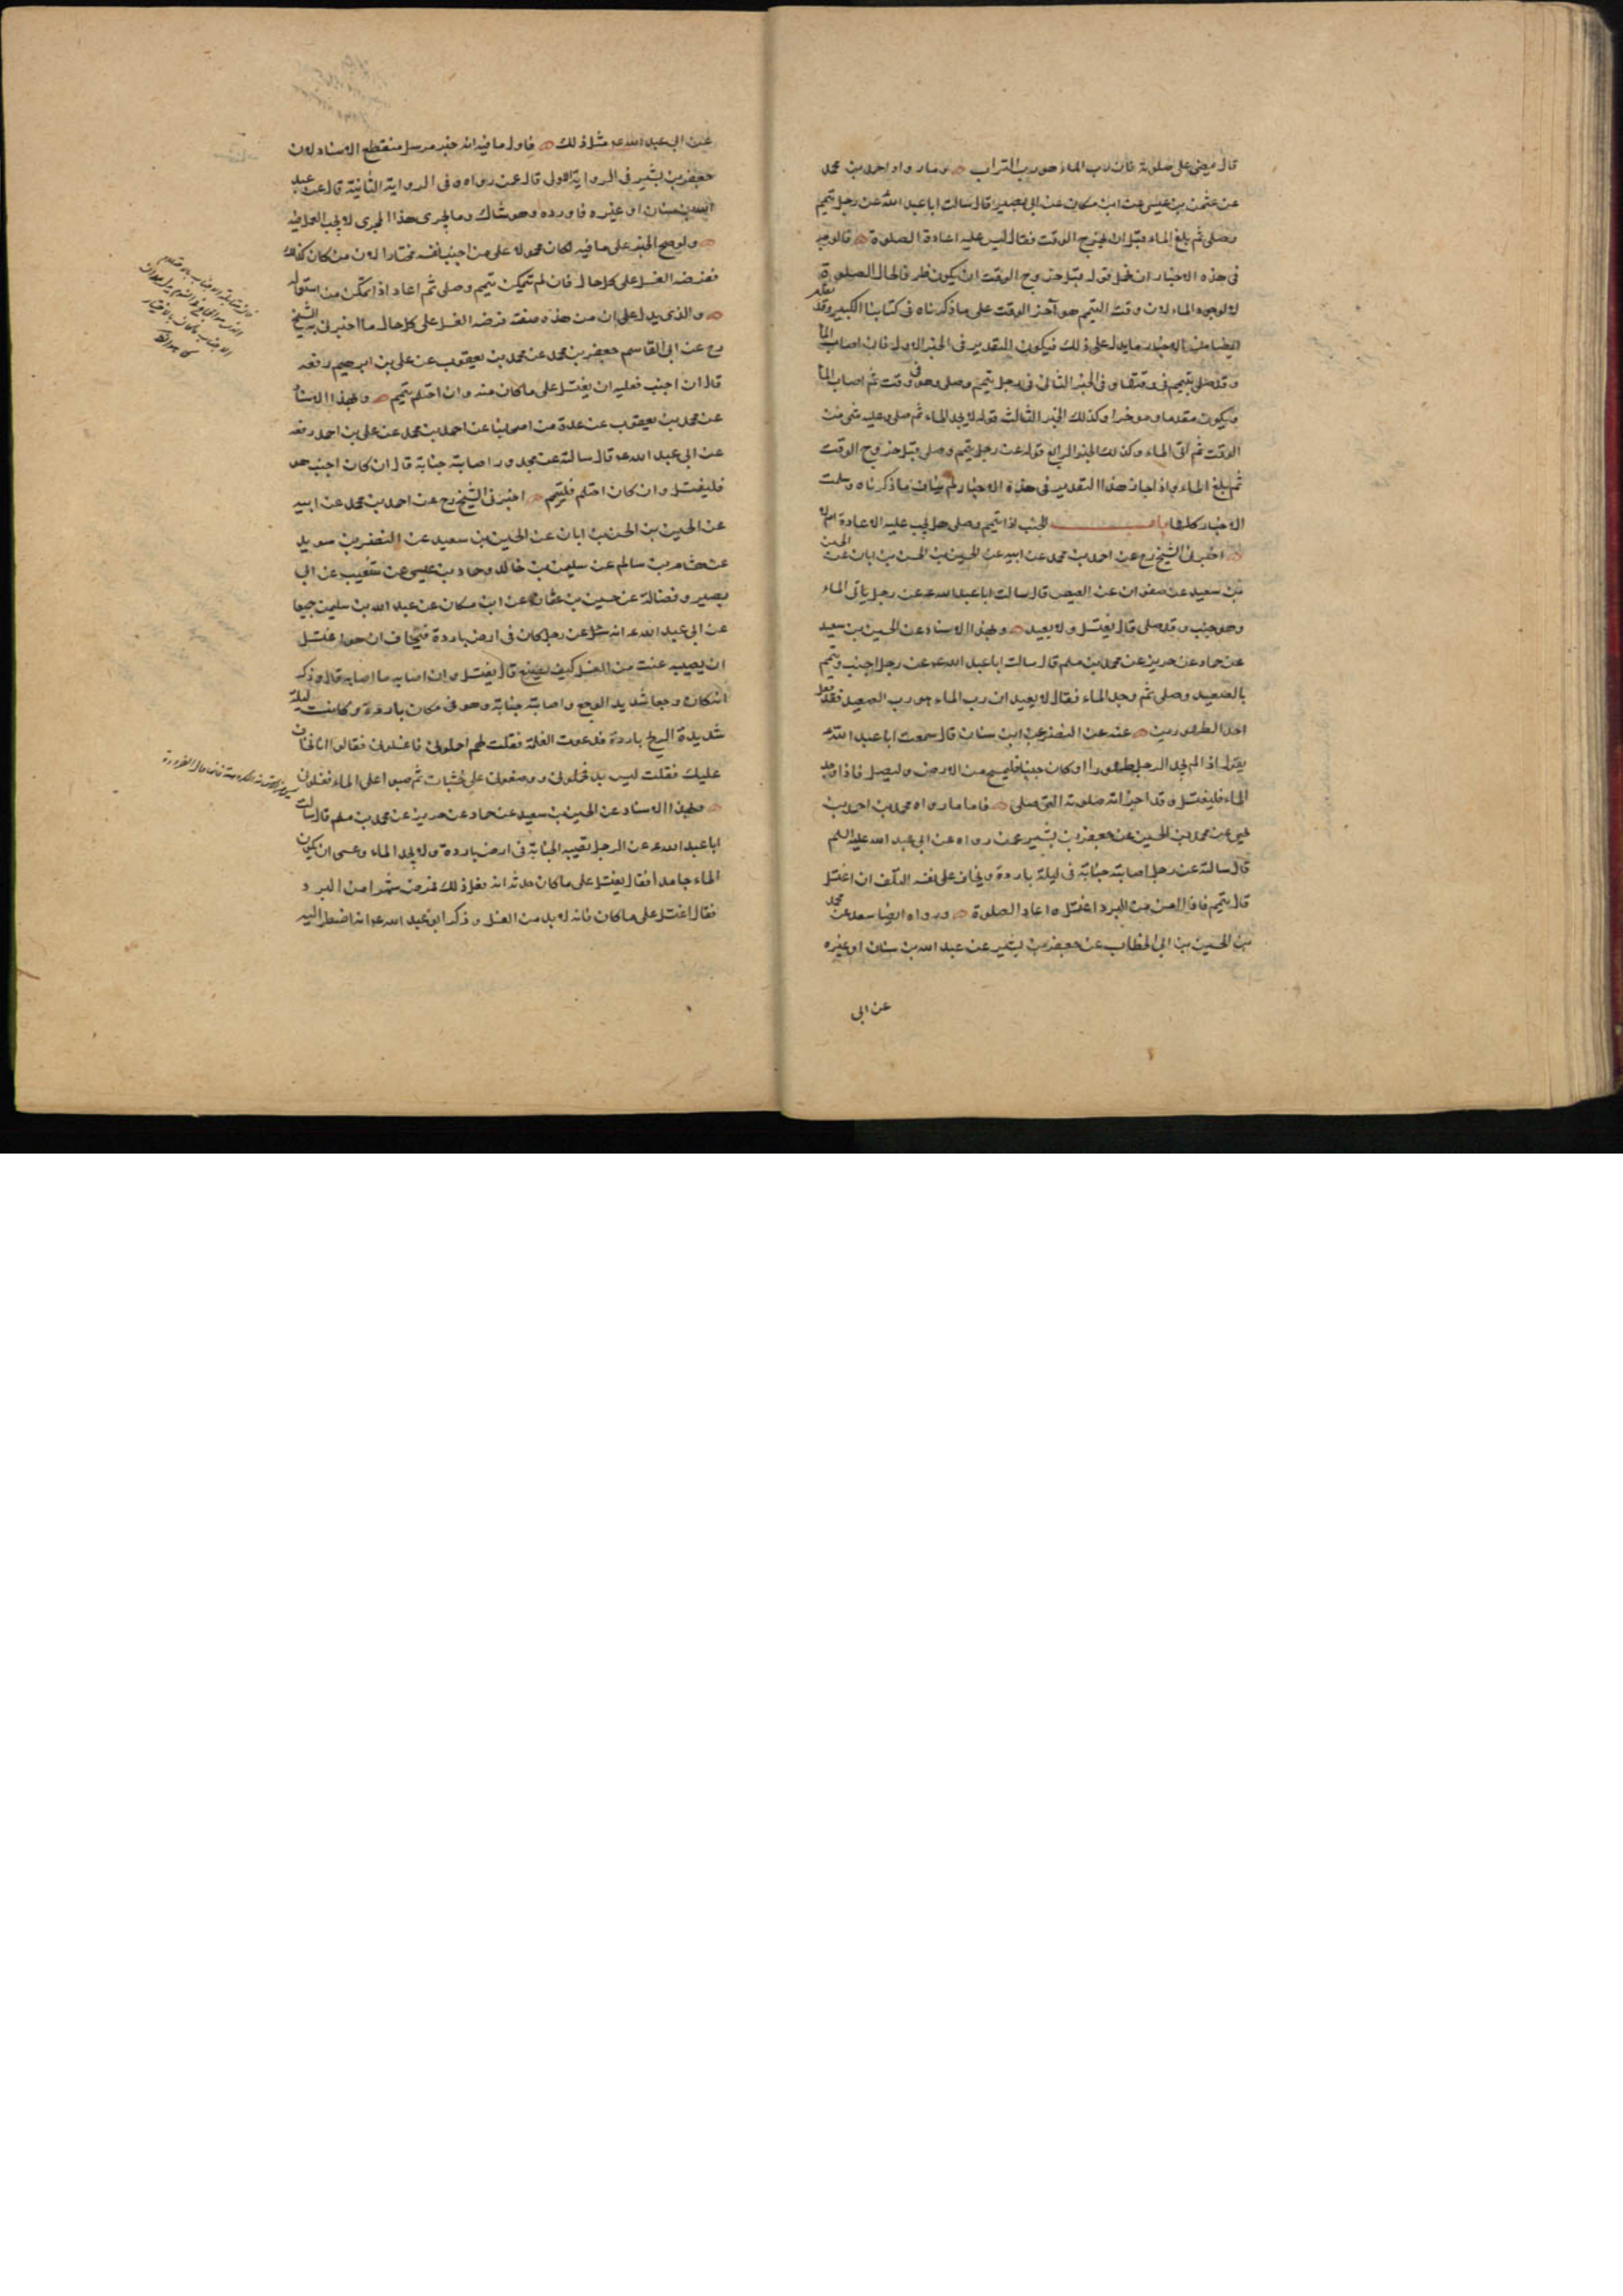 قال يمضى على صلوته فان رب الماء هو رب التراب وما رواه احمد بن محمد
عن عثمن بن عيسى عن ابن مسكان عن ابى بصير قال سالت ابا عبد الله عن رجل تيمم
وصلى ثم بلغ الماء قبل ان يخرج الوقت فقال ليس عليه اعادة الصلوة فالوجه
فى هذه الاخبار ان نحمل قوله قبل خروج الوقت ان يكون ظرفا لحال الصلوة
لا لوجود الماء لان وقت التيمم هو آخر الوقت على ما ذكرناه فى كتابنا الكبير وقد تقدم
ايضا من الاخبار ما يدل على ذلك فيكون التقدير فى الخبر الاول فان اصاب الماء
وقد صلى بتيمم فى وقتها وفى الخبر الثانى فى رجل تيمم وصلى وهو فى وقت ثم اصاب الماء
ويكون مقدما وموخرا وكذلك الخبر الثالث قوله لا يجد الماء ثم صلى وعليه شى من
الوقت ثم اتى الماء وكذلك الخبر الرابع قوله عن رجل تيمم وصلى قبل خروج الوقت
ثم بلغ الماء واذا جاز هذا التقدير فى هذه الاخبار لم يناف ما ذكرناه وسلمت
الاخبار كلها باب الجنب اذا تيمم وصلى هل يجب عليه الاعادة ام لا
اخبرنى الشيخ رح عن احمد بن محمد عن ابيه عن الحسين بن الحسن بن ابان عن الحسين
بن سعيد عن صفوان عن العيص قال سالت ابا عبد الله ع عن رجل ياتى الماء
وهو جنب وقد صلى قال يغتسل ولا يعيد وبهذا الاسناد عن الحسين بن سعيد
عن حماد عن حريز عن محمد بن مسلم قال سالت ابا عبد الله ع عن رجل اجنب وتيمم
بالصعيد وصلى ثم وجد الماء فقال لا يعيد ان رب الماء هو رب الصعيد فقد فعل
احد الطهورين عنه عن النضر عن ابن سنان قال سمعت ابا عبد الله ع
يقول اذا لم يجد الرجل طهورا وكان جنبا فليمسح من الارض وليصل فاذا وجد
الماء فليغتسل وقد اجزأته صلوته التى صلى فاما ما رواه محمد بن احمد بن
يحيى عن محمد بن الحسين عن جعفر بن بشير عمن رواه عن ابى عبد الله عليه السلم
قال سالته عن رجل اصابته جنابة فى ليلة باردة ويخاف على نفسه التلف ان اغتسل
قال تيمم فاذا امن من البرد اغتسل واعاد الصلوة ورواه ايضا سعد عن محمد
بن الحسين بن ابى الخطاب عن جعفر بن بشير عن عبد الله بن سنان او غيره
عن ابى
عن ابى عبد الله ع مثل ذلك فاول ما فيه انه خبر مرسل منقطع الاسناد لان
جعفر بن بشير فى الرواية الاولى قال عمن رواه وفى الرواية الثانية قال عن عبد
الله بن سنان او غيره فاورده وهو شاك وما يجرى هذا المجرى لا يجب العمل به
ولو صح الخبر على ما فيه لكان محمولا على من اجنب نفسه مختارا لان من كان كذلك
ففرضه الغسل على كل حال فان لم يتمكن تيمم وصلى ثم اعاد اذا تمكن من استعماله
والذى يدل على ان من هذه صفته فرضه الغسل على كل حال ما اخبرنى به الشيخ
رح عن ابى القاسم جعفر بن محمد عن محمد بن يعقوب عن على بن ابرهيم رفعه
قال ان اجنب فعليه ان يغتسل على ما كان منه وان احتلم تيمم وبهذا الاسناد
عن محمد بن يعقوب عن عدة من اصحابنا عن احمد بن محمد عن على بن احمد رفعه
عن ابى عبد الله ع قال سالته عن مجدور اصابته جنابة قال ان كان اجنب هو
فليغتسل وان كان احتلم فليتيمم اخبرنى الشيخ رح عن احمد بن محمد عن ابيه
عن الحسين بن الحسن بن ابان عن الحسين بن سعيد عن النضر بن سويد
عن هشام بن سالم عن سليمن بن خالد وحماد بن عيسى عن شعيب عن ابى
بصير وفضالة عن حسين بن عثمان عن ابن مسكان عن عبد الله بن سليمن جميعا
عن ابى عبد الله ع انه سئل عن رجل كان فى ارض باردة فتخاف ان هو اغتسل
ان يصيبه عنت من الغسل كيف يصنع قال يغتسل وان اصابه ما اصابه قال وذكر
انه كان وجعا شديد الوجع واصابته جنابة وهو فى مكان باردة وكانت ليلة
شديدة الريح باردة فدعوت الغلمة فقلت لهم احملونى فاغسلونى فقالوا انا نخاف
عليك فقلت ليس بد فحملونى ووضعونى على خشبات ثم صبوا على الماء فغسلونى
وبهذا الاسناد عن الحسين بن سعيد عن حماد عن حريز عن محمد بن مسلم قال سالت
ابا عبد الله ع عن الرجل تصيبه الجنابة فى ارض باردة ولا يجد الماء وعسى ان يكون
الماء جامدا فقال يغتسل على ما كان حدثه انه فعل ذلك فمرض شهرا من البرد
فقال اغتسل على ما كان فانه لا بد من الغسل وذكر ابو عبد الله ع انه اضطر اليه